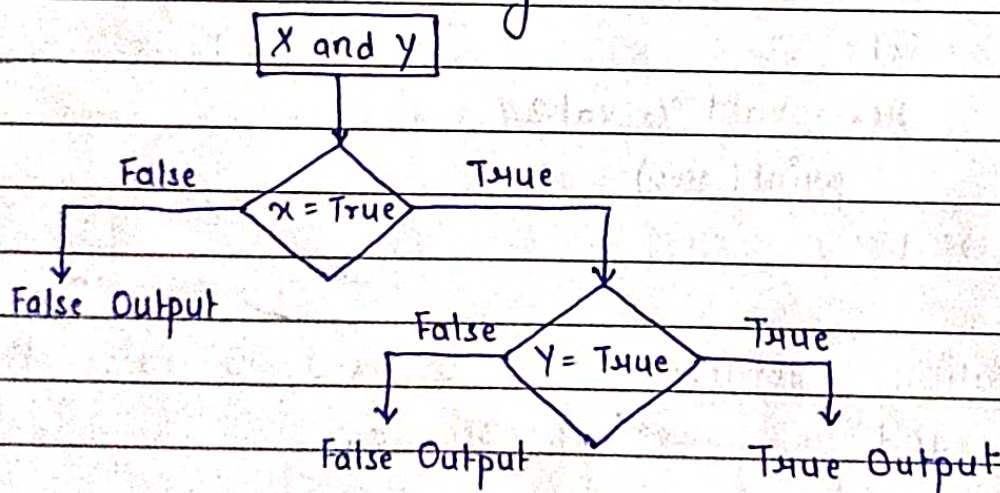 X and Y
False
True
x = True
False Output
False
True
Y = True
False Output
True Output